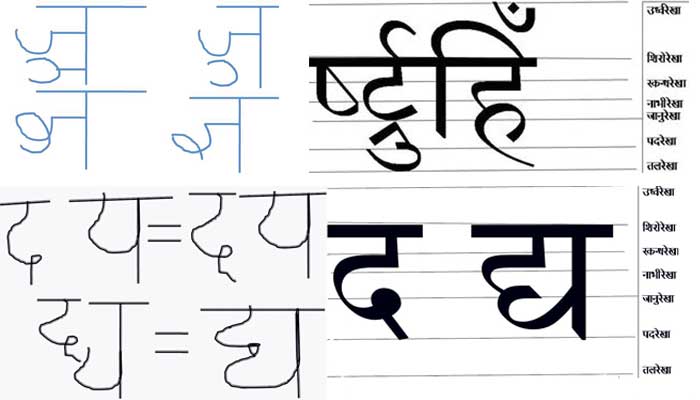 उर्ध्वरेखा
शिरोरेखा
स्कन्धरेखा
नाभीरेखा
जानुरेखा
पदरेखा
तलरेखा
द य = द य
द्य = द्य
द द्य
उर्ध्वरेखा
शिरोरेखा
स्कन्धरेखा
नाभीरेखा
जानुरेखा
पदरेखा
तलरेखा